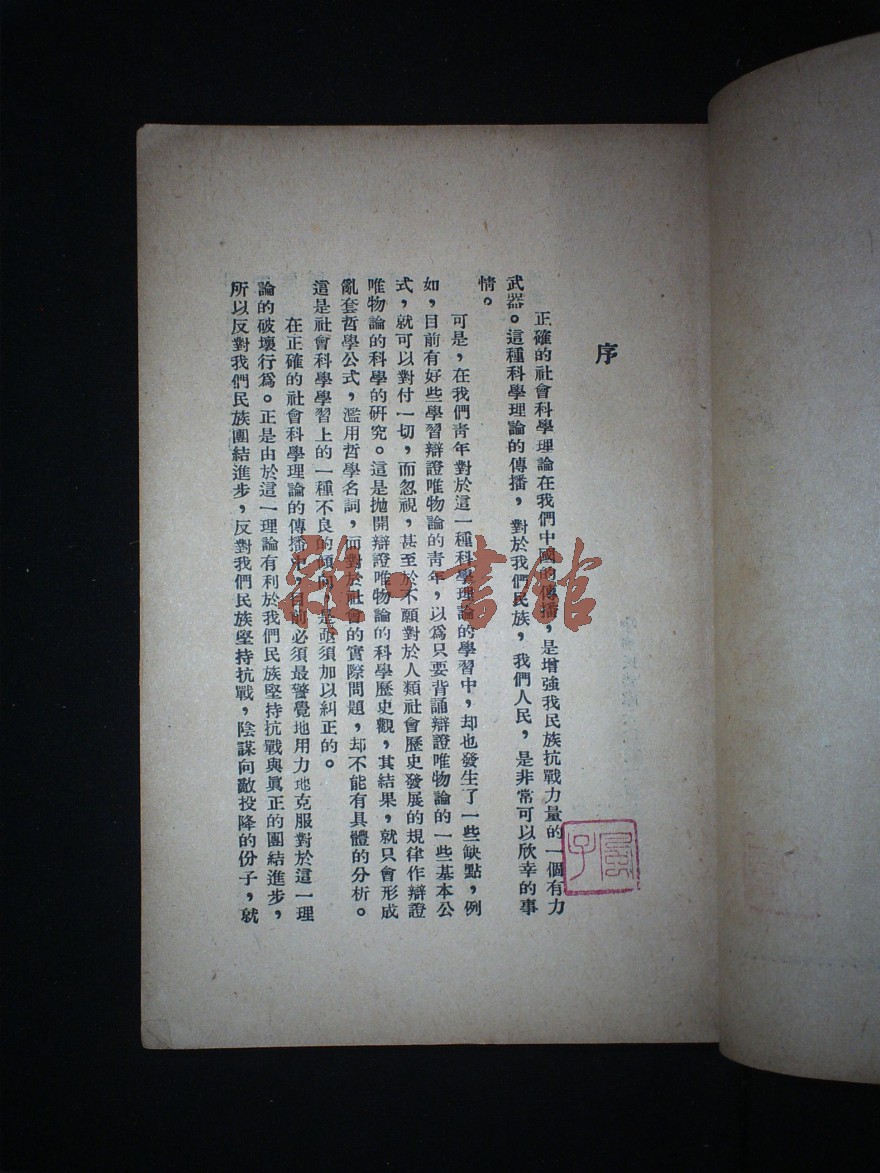 序
正確的社會科學理論在我們中國的傳播，是增強我民族抗戰力量的一個有力
武器。這種科學理論的傳播，對於我們民族，我們人民，是非常可以欣幸的事
情。
可是，在我們青年對於這一種科學理論的學習中，却也發生了一些缺點，例
如，目前有好些學習辯證唯物論的青年，以爲只要背誦辯證唯物論的一些基本公
式，就可以對付一切，而忽視，甚至於不願對於人類社會歷史發展的規律作辯證
唯物論的科學的研究。這是拋開辯證唯物論的科學歷史觀，其結果，就只會形成
亂套哲學公式，濫用哲學名詞，而對於社會的實際問題，却不能有具體的分析。
這是社會科學學習上的一種不良的傾向，是亟須加以糾正的。
在正確的社會科學理論的傳播中，目前必須最警覺地用力地克服對於這一理
論的破壞行爲。正是由於這一理論有利於我們民族堅持抗戰與眞正的團結進步，
所以反對我們民族團結進步，反對我們民族堅持抗戰，陰謀向敵投降的份子，就
雜·書館